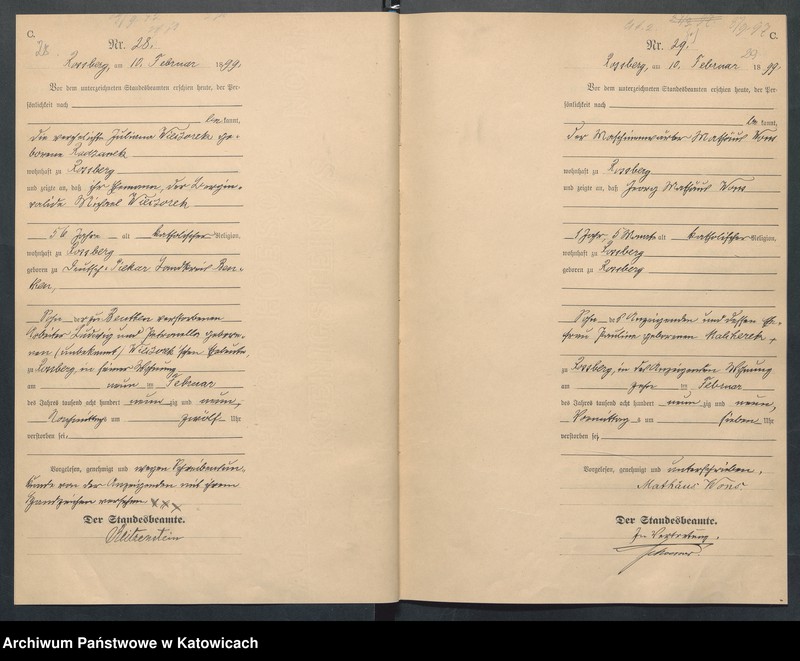 C.
28.
Nr. 28.
Rossberg, am 10. Februar 1899.
Vor dem unterzeichneten Standesbeamten erschien heute, der Per-
sönlichkeit nach
be kannt,
die verehelichte Juliana Wilczorek ge-
borene
wohnhaft zu Rossberg
und zeigte an, daß ihr Ehemann, der Bergin-
valide Michael Wilczorek
56 Jahre alt katholischer Religion,
wohnhaft zu Rossberg
geboren zu Deutsch-Piekar Landkreis Beu-
then,
Sohn der zu Beuthen verstorbenen
Arbeiter Ludwig und Petronella gebore-
nen (unbekannt) Wilczorek'schen Eheleute,
zu Rossberg, in seiner Wohnung
am neun ten Februar
des Jahres tausend acht hundert neun zig und neun,
Nachmittags um zwölf Uhr
verstorben sei.
Vorgelesen, genehmigt und wegen Schreibensun-
kunde von der Anzeigenden mit ihrem
Handzeichen versehen xxx
Der Standesbeamte.
C.
Nr. 29.
29
Rossberg, am 10. Februar 1899.
Vor dem unterzeichneten Standesbeamten erschien heute, der Per-
sönlichkeit nach
be kannt,
der Maschinenwärter Mathäus Wons
wohnhaft zu Rossberg
und zeigte an, daß Georg Mathäus Wons
1 Jahr, 6 Monate alt katholischer Religion,
wohnhaft zu Rossberg
geboren zu Rossberg
Sohn des Anzeigenden und dessen Ehe-
frau Pauline geborenen
zu Rossberg, in des Anzeigenden Wohnung
am zehn ten Februar
des Jahres tausend acht hundert neun zig und neun,
Vormittags um sieben Uhr
verstorben sei.
Vorgelesen, genehmigt und unterschrieben.
Mathäus Wons
Der Standesbeamte.
In Vertretung.
Archiwum Państwowe w Katowicach